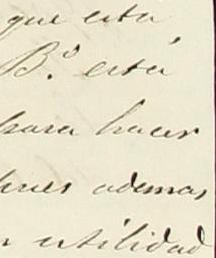 que esta
B.º está
para hacer
pues ademas
utilidad